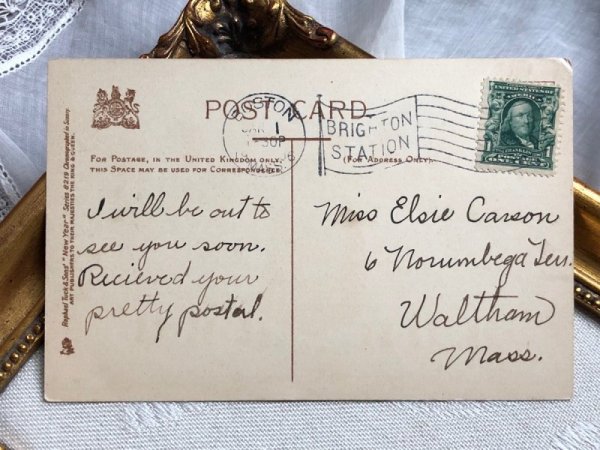 POST CARD
BOSTON
JAN 1
MASS.
BRIGHTON
STATION
UNITED STATES OF
For Postage, in the United Kingdom only,
this Space may be used for Correspondence
(For Address Only)
I will be out to
see you soon.
Recieved your
pretty postal.
Miss Elsie Carson
6 Norumbega Terr.
Waltham
Mass.
Raphael Tuck & Sons' "New Year" Series 6219 Chromographed in Saxony
ART PUBLISHERS TO THEIR MAJESTIES THE KING & QUEEN.